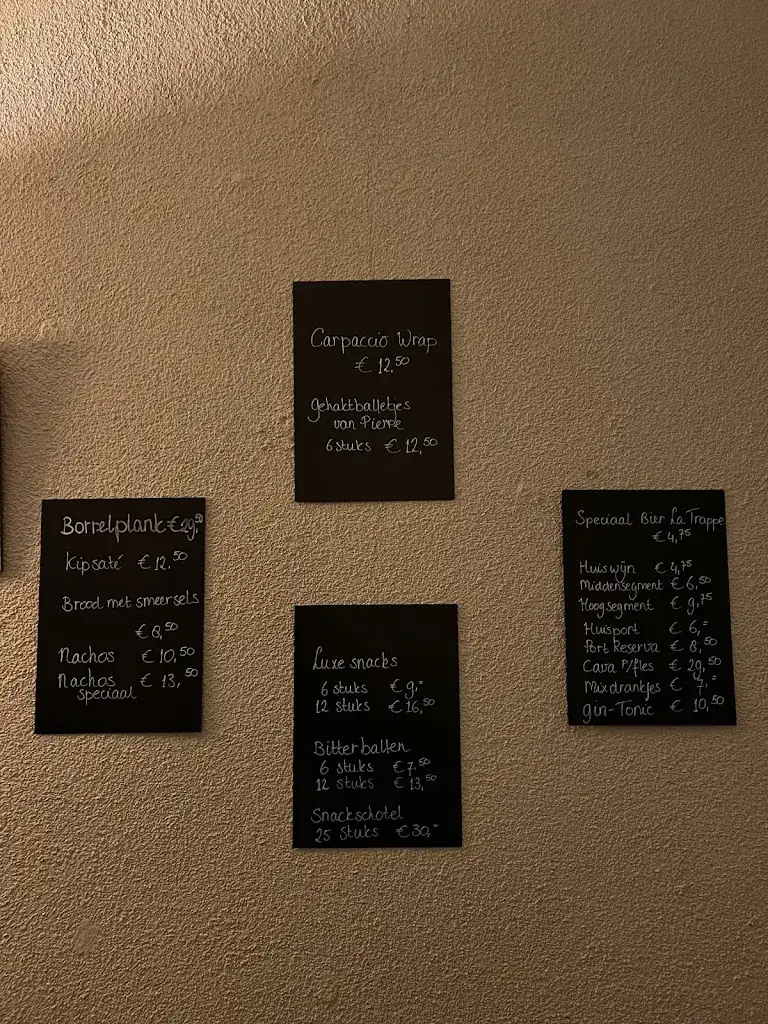 Carpaccio Wrap
€ 12,50
gehaktballetjes
van Pierre
6 stuks € 12,50
Borrelplank €29,50
Kipsaté € 12,50
Brood met smeersels
€ 8,50
Nachos € 10,50
Nachos € 13,50
speciaal
Luxe snacks
6 stuks € 9,-
12 stuks € 16,50
Bitterballen
6 stuks € 7,50
12 stuks € 13,50
Snackschotel
25 Stuks € 30,-
Speciaal Bier La Trappe
€ 4,75
Huiswijn € 4,75
Middensegment € 6,50
Hoogsegment € 9,75
Huisport € 6,=
Port Reserva € 8,50
Cava P/fles € 29,50
Mixdrankjes € 7,=
gin-Tonic € 10,50